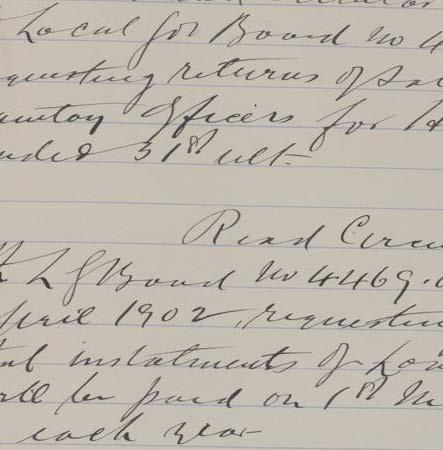 Local Gov Board No 4
questing returns of Sa
Officers for H
nded 31st ult.
Read Circu
L G Board No 4469.
April 1902, requestin
instalments of Loa
will be paid on 1st M
each year